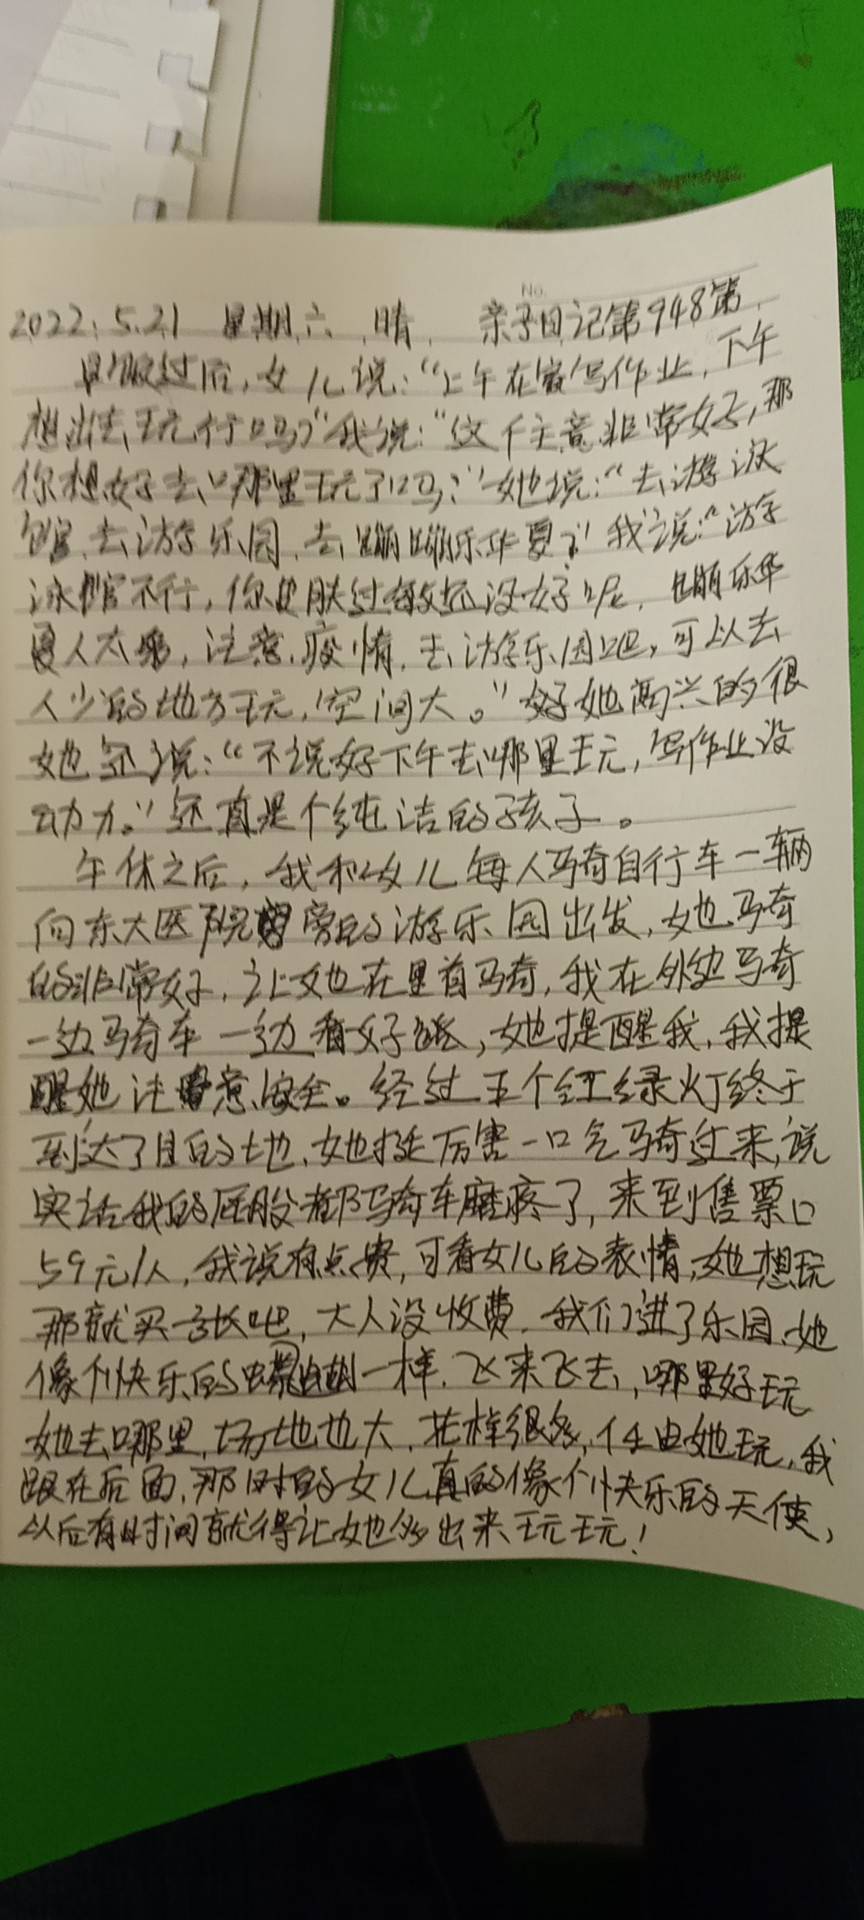 No.
2022.5.21 星期六 晴 亲子日记第948篇
早饭过后,女儿说:“上午在家写作业,下午
想出去玩行吗?”我说:“这个主意非常好,那
你想好去哪里玩了吗?”她说:“去游泳
馆、去游乐园、去蹦蹦乐华夏?”我说:“游
泳馆不行,你皮肤过敏还没好呢,蹦乐华
夏人太多,注意疫情,去游乐园吧,可以去
人少的地方玩,空间大。”好她高兴的很
她还说:“不说好下午去哪里玩,写作业没
动力。”还真是个纯洁的孩子。
午休之后,我和女儿每人骑自行车一辆
向东大医院旁的游乐园出发,她骑
的非常好,让她在里首骑,我在外边骑
一边骑车一边看好路,她提醒我,我提
醒她注意安全。经过五个红绿灯终于
到达了目的地,她挺厉害一口气骑过来,说
实话我的屁股都骑车磨疼了,来到售票口
59元/人,我说有点贵,可看女儿的表情,她想玩
那就买一张吧,大人没收费,我们进了乐园,她
像个快乐的蝴一样,飞来飞去,哪里好玩
她去哪里,场地也大,花样很多,任由她玩,我
跟在后面,那时的女儿真的像个快乐的天使,
以后有时间就得让她多出来玩玩!